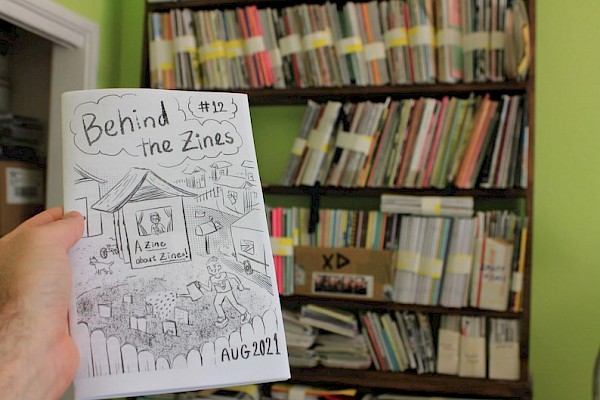 #12
Behind
the Zines
A Zine
about Zines!
AUG 2021
XD